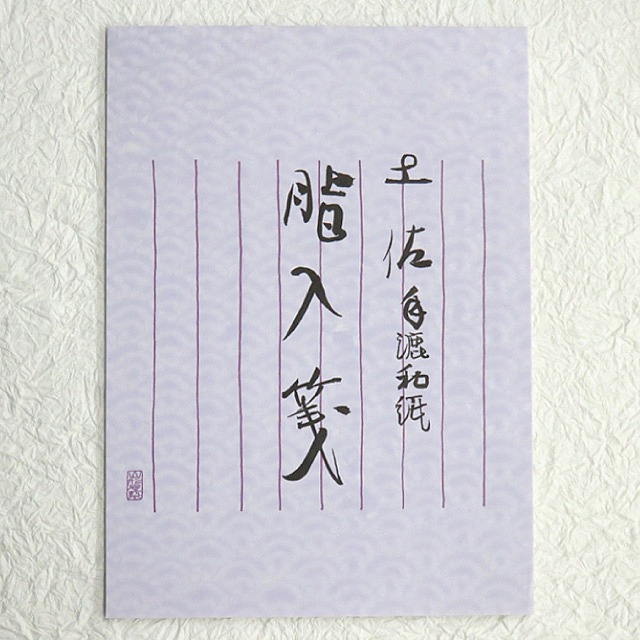 土佐手漉和紙
脂入箋